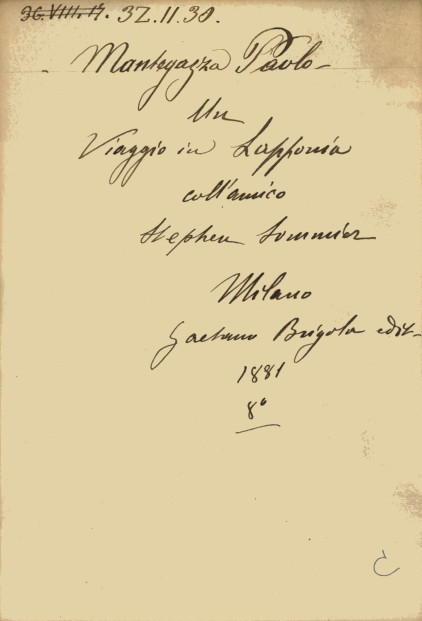 36.VIII.17. 37.II.30.
Mantegazza Paolo
Un
Viaggio in Lapponia
coll'amico
Stephen Sommier
Milano
Gaetano Brigola edit.
1881
8°
C